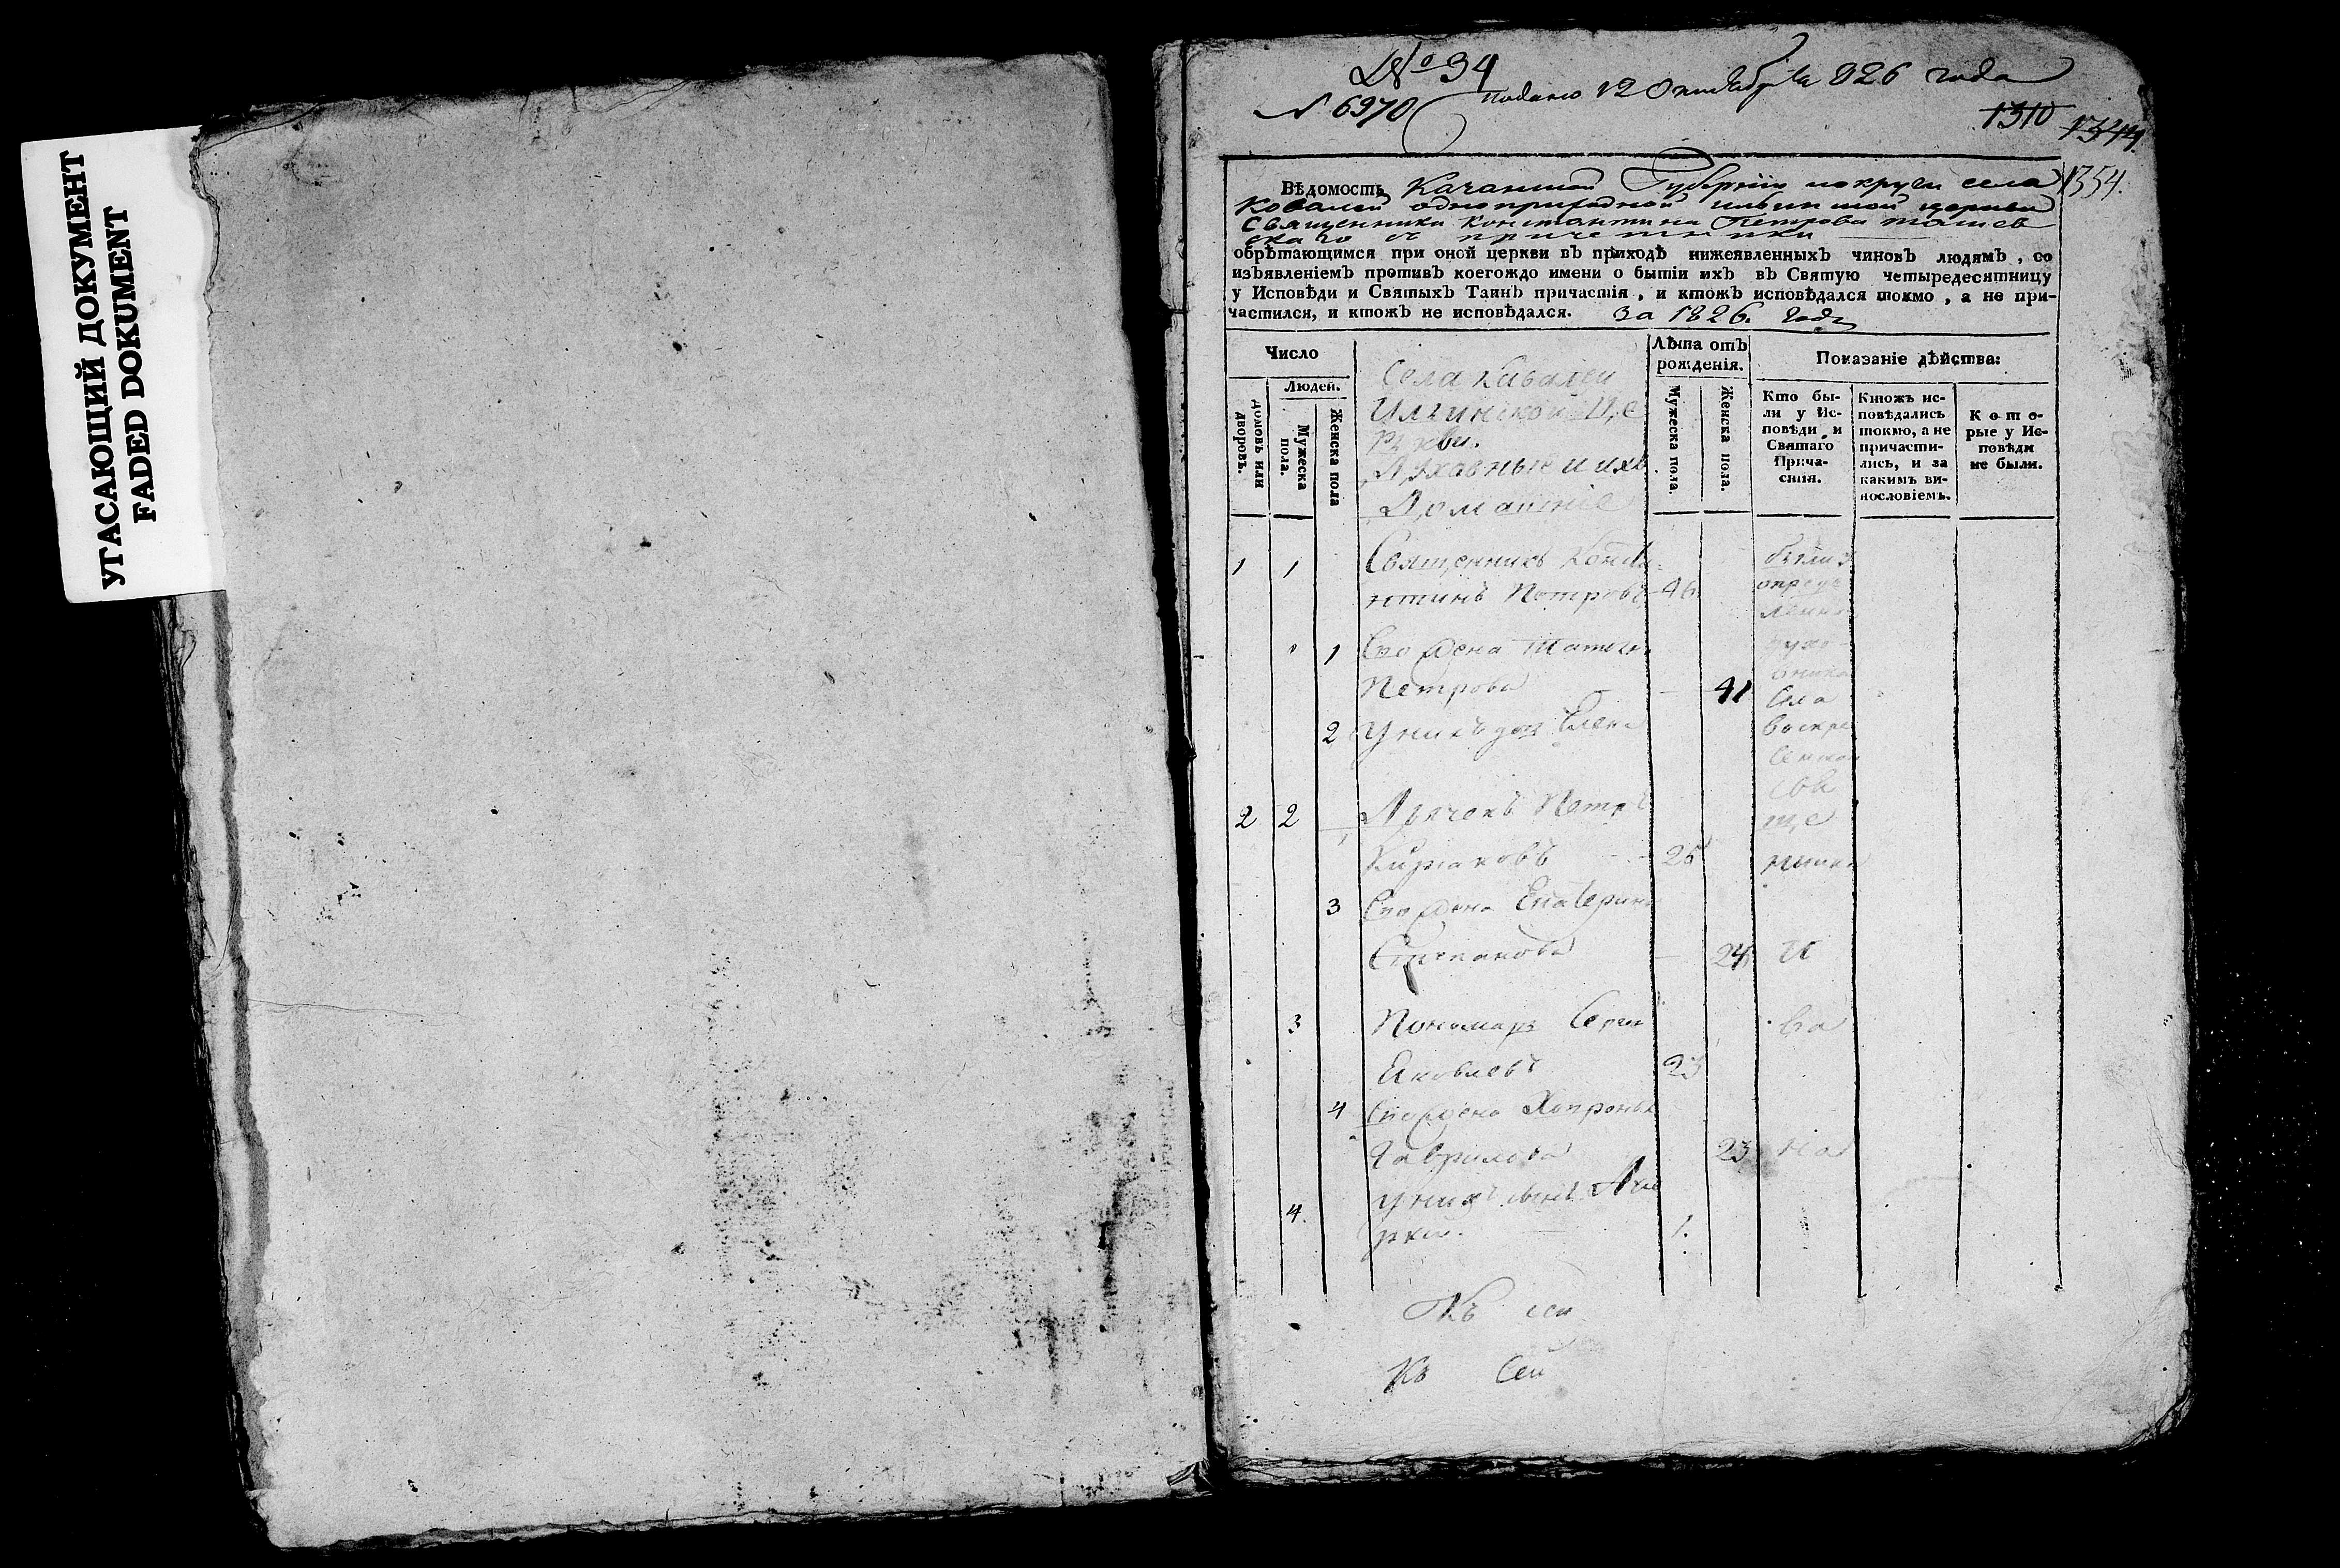 УГАСАЮЩИЙ ДОКУМЕНТ
FADED DOKUMENT
№ 34
N 6970
подано 12 октября 826 года
1310
1344.
1354.
Вѣдомость Казанской Губернии округи села
Ковалей одноприходной ильинской церкви
Священника Константина Петрова
скаго съ причетники
обрѣтающимся при оной церкви въ приходѣ нижеявленныхъ чиновъ людямъ, со
изъявленіемъ противъ коегождо имени о бытіи ихъ въ Святую четыредесятницу
у Исповѣди и Святыхъ Таинъ причастія, и ктожъ исповѣдался токмо, а не при-
частился, и ктожъ не исповѣдался. за 1826. годъ
Число
Людей.
домовъ или дворовъ.
Мужеска пола.
Женска пола
Села Ковалей
Илинской Це
ркви.
Духовныи и ихъ
Домашніе
Лѣта отъ
рожденія.
Мужеска пола.
Женска пола.
Показаніе дѣйства:
Кто бы-
ли у Ис-
повѣди и
Святаго
Прича-
стія.
Ктожъ ис-
повѣдались
токмо, а не
причасти-
лись, и за
какимъ ви-
нословіемъ.
Кото-
рые у Ис-
повѣди
не были.
1 1 Священникъ Конста
нтинъ Петровъ 46
были у
опреде
леннаго
духо
вника
1 Его жена Татиа
Петрова 41 села
2 У нихъ дочь Елена воскре
сенскаго
свя
2 2 Дьячекъ Петръ ще
26 нника
3 Его жена Екатерина
Степанова 24
3 Пономарь Сергеи
Яковлевъ 23
4 Его жена
Гаврилова 23
4. У нихъ сынъ
1.
Къ сей